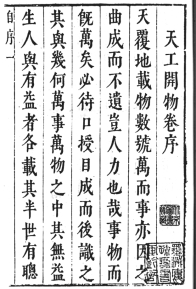 天工開物卷序
天覆地載物數號萬而事亦因之
曲成而不遺豈人力也哉事物而
既萬矣必待口授目成而後識之
其與幾何萬事萬物之中其無益
生人與有益者各載其半世有聰
序一